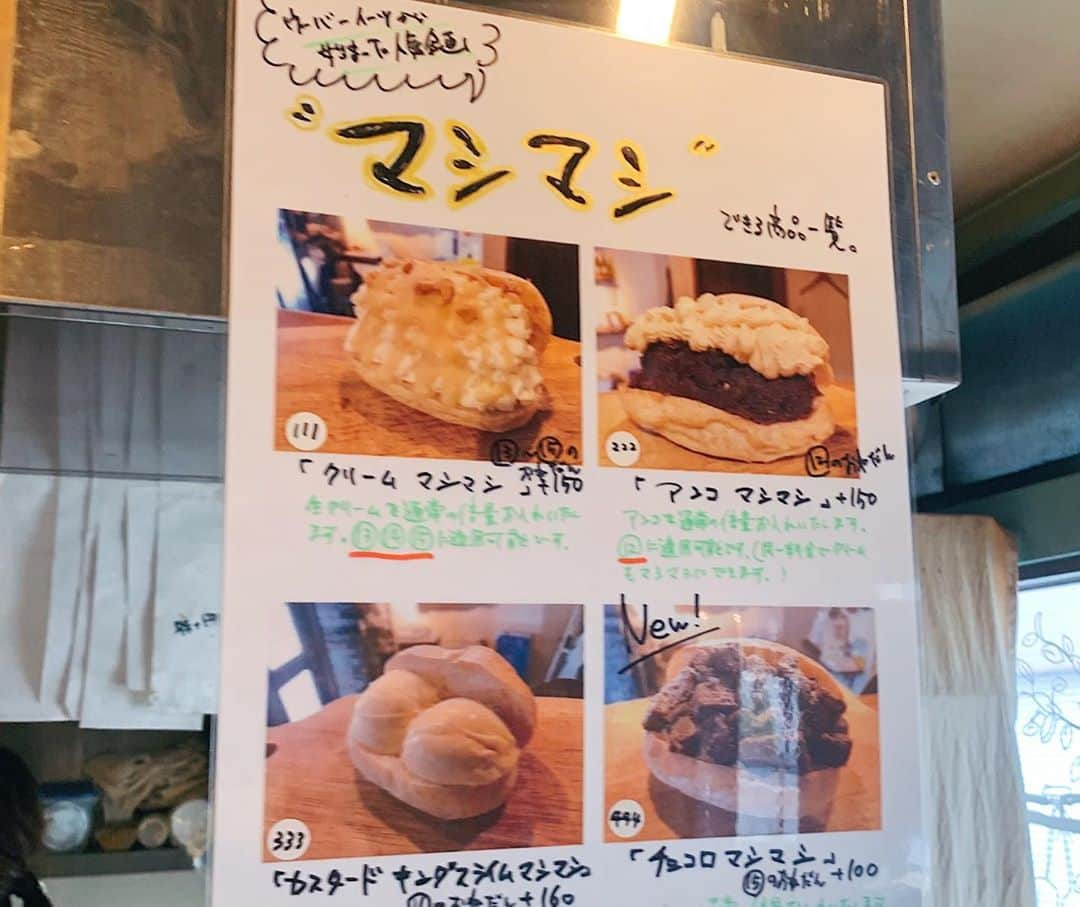 ウーバーイーツから
やりはじめた人気企画！
"マシマシ"
できる商品一覧。
111
⑬〜⑮の
おねだん
「クリーム マシマシ」+150
生クリームを通常の倍量お入れいたし
ます。⑬⑭⑮に適用可能です。
222
⑫のおねだん
「アンコ マシマシ」+150
アンコを通常の倍量お入れいたします。
⑫に適用可能です。(同一料金でクリーム
もマシマシにできます。)
333
「カスタード キングスライムマシマシ
のおねだん+160
New!
444
「チョコロ マシマシ」
⑮のおねだん+100